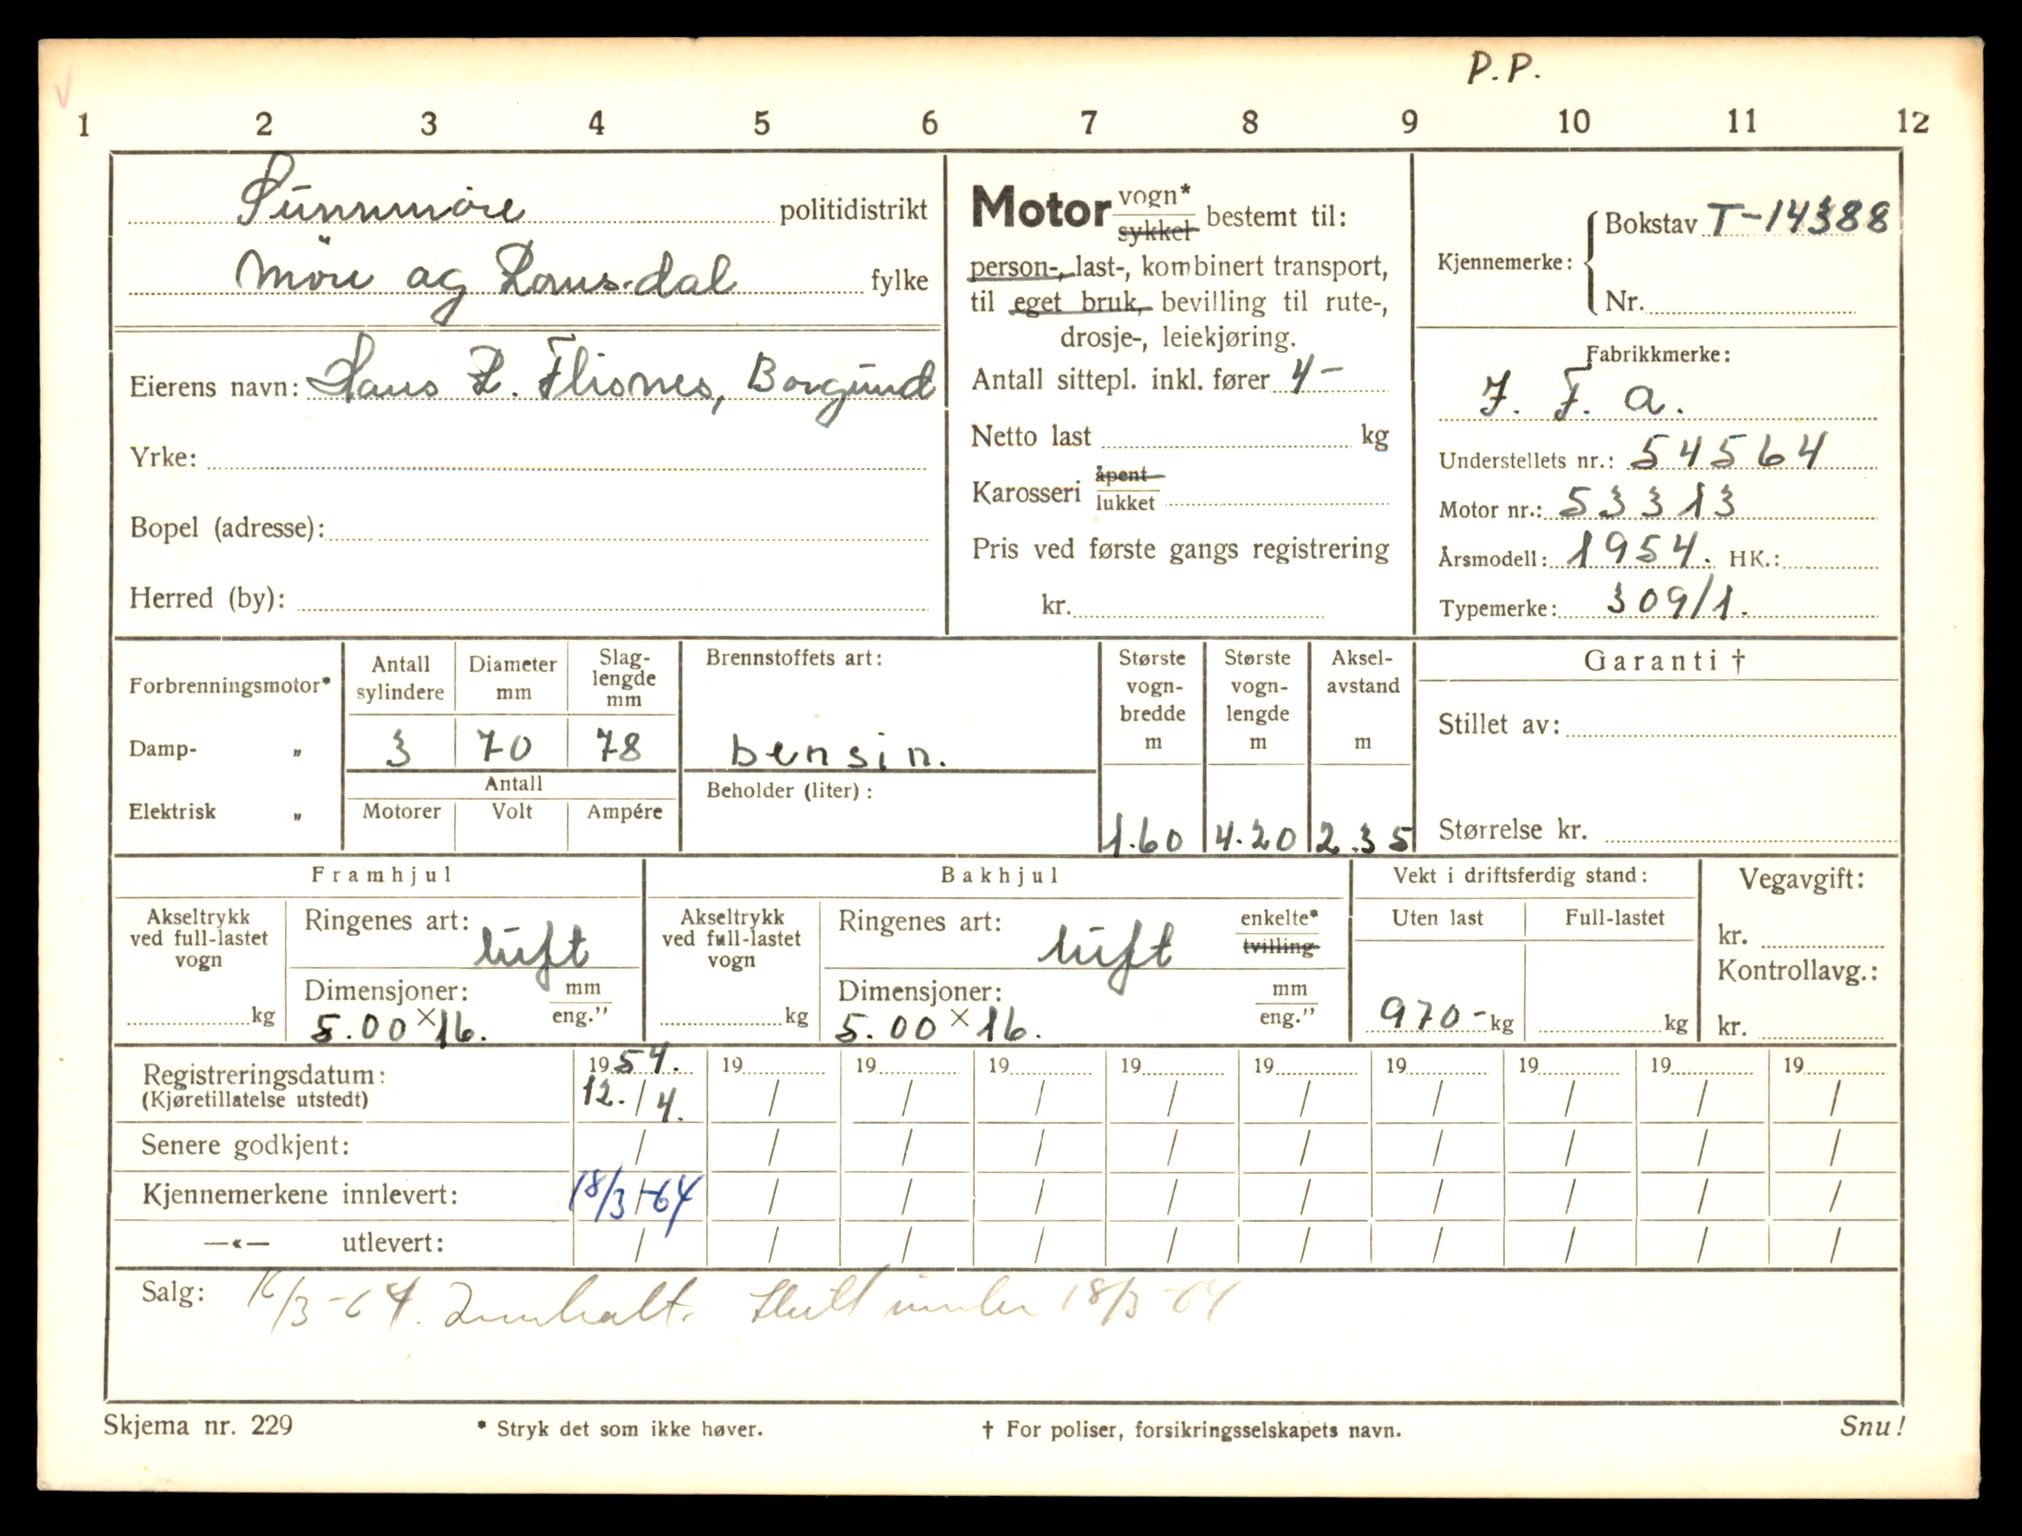 P.P.
1 2 3 4 5 6 7 8 9 10 11 12
Sunnmöre politidistrikt
Möre og Romsdal fylke
Eierens navn: Hans R. Flisnes, Borgund
Yrke:
Bopel (adresse):
Herred (by):
Motor vogn* sykkel bestemt til:
person-, last-, kombinert transport,
til eget bruk, bevilling til rute-,
drosje-, leiekjøring.
Antall sittepl. inkl. fører 4-
Netto last kg
Karosseri åpent lukket
Pris ved første gangs registrering
kr.
Kjennemerke: Bokstav T-14388
Nr.
Fabrikkmerke:
I. F. A.
Understellets nr.: 54564
Motor nr.: 53313
Årsmodell: 1954. HK.:
Typemerke: 309/1.
Forbrenningsmotor*
Damp- „
Elektrisk „
Antall sylindere 3
Diameter mm 70
Slag-lengde mm 78
Antall
Motorer Volt Ampére
Brennstoffets art:
bensin.
Beholder (liter):
Største vogn-bredde m 1.60
Største vogn-lengde m 4.20
Aksel-avstand m 2.35
Garanti †
Stillet av:
Størrelse kr.
Framhjul
Akseltrykk ved full-lastet vogn kg
Ringenes art: luft
Dimensjoner: mm eng."
5.00 × 16.
Bakhjul
Akseltrykk ved full-lastet vogn kg
Ringenes art: luft enkelte* tvilling
Dimensjoner: mm eng."
5.00 × 16.
Vekt i driftsferdig stand:
Uten last Full-lastet
970- kg kg
Vegavgift:
kr.
Kontrollavg.:
kr.
Registreringsdatum: 1954. 19 19 19 19 19 19 19 19 19
(Kjøretillatelse utstedt) 12./4. / / / / / / / / /
Senere godkjent: / / / / / / / / / /
Kjennemerkene innlevert: 18/3-64 / / / / / / / / /
—«— utlevert: / / / / / / / / / /
Salg: 16/3-64. 18/3-64
Skjema nr. 229
* Stryk det som ikke høver.
† For poliser, forsikringsselskapets navn.
Snu!